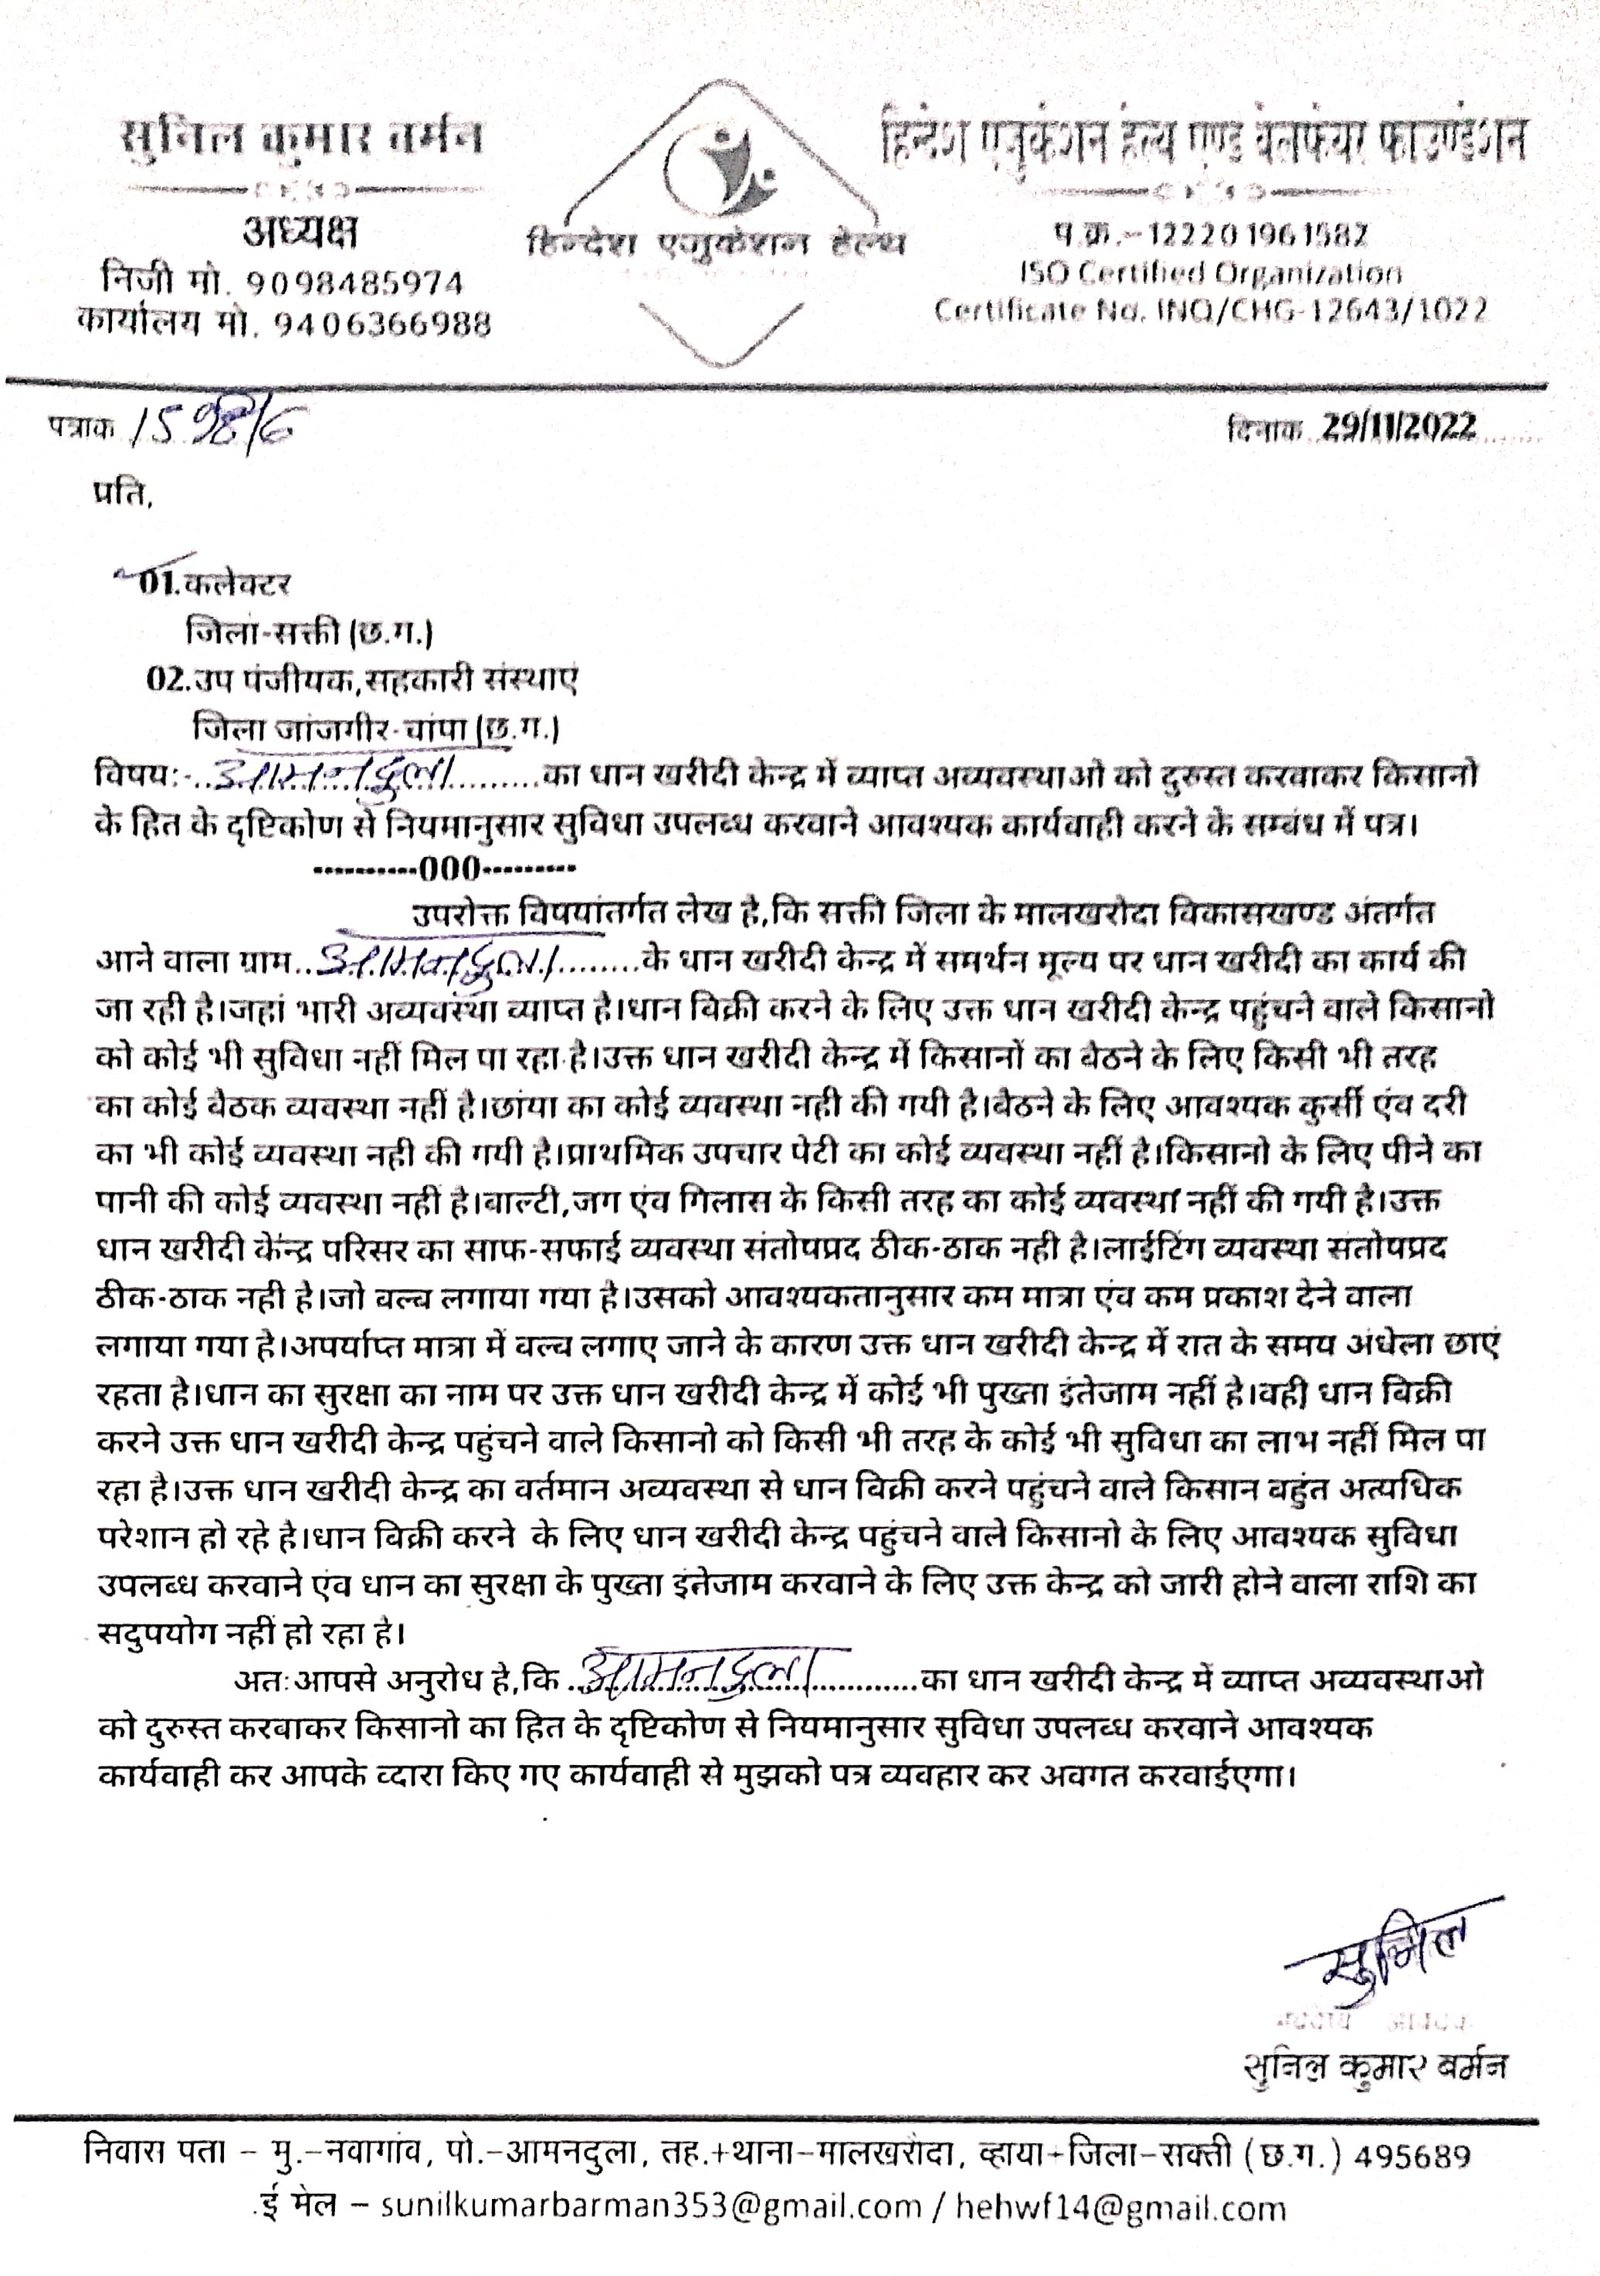 सुनिल कुमार बर्मन
अध्यक्ष
निजी मो. 9098485974
कार्यालय मो. 9406366988
हिन्देश एजुकेशन हेल्थ
हिन्देश एजुकेशन हेल्थ एण्ड वेलफेयर फाउण्डेशन
पं.क्र.–122201961582
ISO Certified Organization
Certificate No. INQ/CHG-12643/1022
पत्राक
दिनाक 29/11/2022
प्रति,
01.कलेक्टर
जिला-सक्ती (छ.ग.)
02.उप पंजीयक,सहकारी संस्थाएं
जिला जांजगीर-चांपा (छ.ग.)
विषयः-..आमनदुला.........का धान खरीदी केन्द्र में व्याप्त अव्यवस्थाओ को दुरुस्त करवाकर किसानो
के हित के दृष्टिकोण से नियमानुसार सुविधा उपलब्ध करवाने आवश्यक कार्यवाही करने के सम्बंध में पत्र।
----------000---------
उपरोक्त विषयांतर्गत लेख है,कि सक्ती जिला के मालखरौदा विकासखण्ड अंतर्गत
आने वाला ग्राम..आमनदुला.........के धान खरीदी केन्द्र में समर्थन मूल्य पर धान खरीदी का कार्य की
जा रही है।जहां भारी अव्यवस्था व्याप्त है।धान बिक्री करने के लिए उक्त धान खरीदी केन्द्र पहुंचने वाले किसानो
को कोई भी सुविधा नहीं मिल पा रहा है।उक्त धान खरीदी केन्द्र में किसानों का बैठने के लिए किसी भी तरह
का कोई बैठक व्यवस्था नहीं है।छांया का कोई व्यवस्था नही की गयी है।बैठने के लिए आवश्यक कुर्सी एंव दरी
का भी कोई व्यवस्था नही की गयी है।प्राथमिक उपचार पेटी का कोई व्यवस्था नहीं है।किसानो के लिए पीने का
पानी की कोई व्यवस्था नही है।बाल्टी,जग एंव गिलास के किसी तरह का कोई व्यवस्था नहीं की गयी है।उक्त
धान खरीदी केन्द्र परिसर का साफ-सफाई व्यवस्था संतोषप्रद ठीक-ठाक नही है।लाईटिंग व्यवस्था संतोषप्रद
ठीक-ठाक नही है।जो बल्ब लगाया गया है।उसको आवश्यकतानुसार कम मात्रा एंव कम प्रकाश देने वाला
लगाया गया है।अपर्याप्त मात्रा में बल्ब लगाए जाने के कारण उक्त धान खरीदी केन्द्र में रात के समय अंधेला छाएं
रहता है।धान का सुरक्षा का नाम पर उक्त धान खरीदी केन्द्र में कोई भी पुख्ता इंतेजाम नहीं है।वही धान बिक्री
करने उक्त धान खरीदी केन्द्र पहुंचने वाले किसानो को किसी भी तरह के कोई भी सुविधा का लाभ नहीं मिल पा
रहा है।उक्त धान खरीदी केन्द्र का वर्तमान अव्यवस्था से धान बिक्री करने पहुंचने वाले किसान बहुंत अत्यधिक
परेशान हो रहे है।धान बिक्री करने के लिए धान खरीदी केन्द्र पहुंचने वाले किसानो के लिए आवश्यक सुविधा
उपलब्ध करवाने एंव धान का सुरक्षा के पुख्ता इंतेजाम करवाने के लिए उक्त केन्द्र को जारी होने वाला राशि का
सदुपयोग नहीं हो रहा है।
अतःआपसे अनुरोध है,कि ..आमनदुला..........का धान खरीदी केन्द्र में व्याप्त अव्यवस्थाओ
को दुरुस्त करवाकर किसानो का हित के दृष्टिकोण से नियमानुसार सुविधा उपलब्ध करवाने आवश्यक
कार्यवाही कर आपके व्दारा किए गए कार्यवाही से मुझको पत्र व्यवहार कर अवगत करवाईएगा।
सुनिल
सुनिल कुमार बर्मन
निवास पता – मु.–नवागांव, पो.–आमनदुला, तह.+थाना–मालखरौदा, व्हाया+जिला–सक्ती (छ.ग.) 495689
ई मेल – sunilkumarbarman353@gmail.com / hehwf14@gmail.com